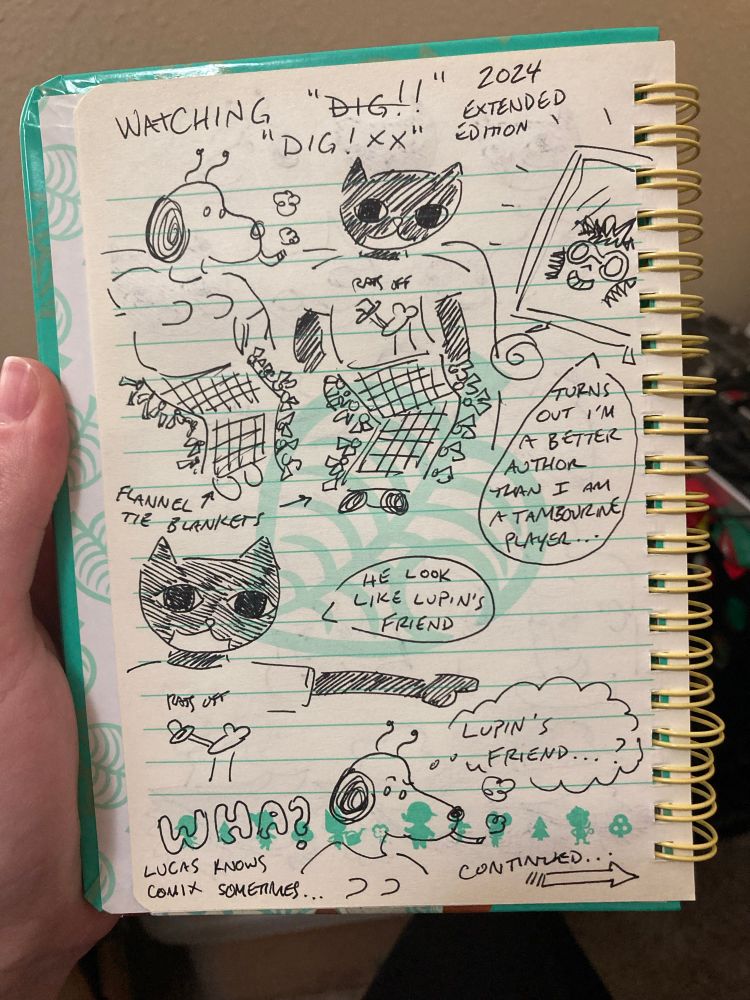 WATCHING "DIG!!" 2024
"DIG! XX" EXTENDED
EDITION
RATS OFF
TURNS
OUT I'M
A BETTER
AUTHOR
THAN I AM
A TAMBOURINE
PLAYER...
FLANNEL
TIE BLANKETS
HE LOOK
LIKE LUPIN'S
FRIEND
RATS OFF
LUPIN'S
FRIEND...?
WHA?
LUCAS KNOWS
COMIX SOMETIMES...
CONTINUED...